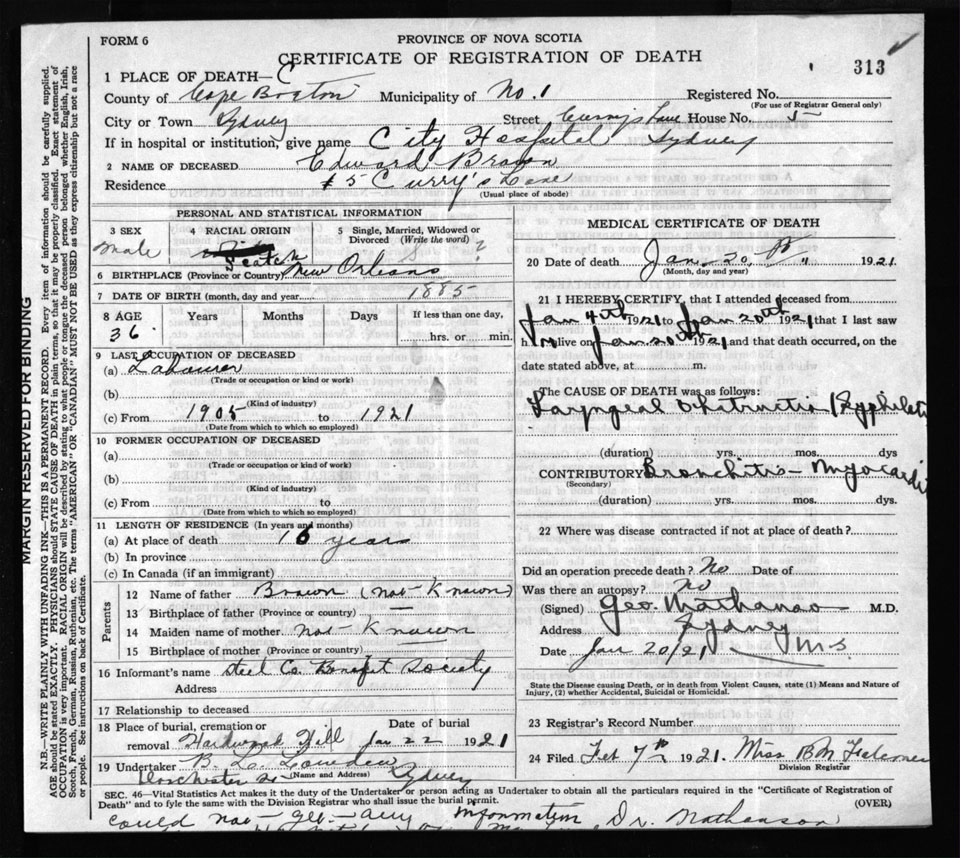 FORM 6
PROVINCE OF NOVA SCOTIA
CERTIFICATE OF REGISTRATION OF DEATH
313
1 PLACE OF DEATH—C
County of Cape Breton Municipality of No. 1 Registered No.
(For use of Registrar General only)
City or Town Sydney Street Curry's Lane House No. 5
If in hospital or institution, give name City Hospital Sydney
2 NAME OF DECEASED Edward Brown
Residence # 5 Curry's Lane
(Usual place of abode)
PERSONAL AND STATISTICAL INFORMATION
3 SEX 4 RACIAL ORIGIN 5 Single, Married, Widowed or Divorced (Write the word)
male Scotch S ?
6 BIRTHPLACE (Province or Country) New Orleans
7 DATE OF BIRTH (month, day and year) 1885
8 AGE Years Months Days If less than one day,
36 hrs. or min.
9 LAST OCCUPATION OF DECEASED
(a) Labourer
(Trade or occupation or kind or work)
(b)
(Kind of industry)
(c) From 1905 to 1921
(Date from which to which so employed)
10 FORMER OCCUPATION OF DECEASED
(a)
(Trade or occupation or kind of work)
(b)
(Kind of Industry)
(c) From to
(Date from which to which so employed)
11 LENGTH OF RESIDENCE (In years and months)
(a) At place of death 16 years
(b) In province
(c) In Canada (if an immigrant)
Parents
12 Name of father Brown (not Known)
13 Birthplace of father (Province or country) —
14 Maiden name of mother not Known
15 Birthplace of mother (Province or country)
16 Informant's name Steel Co. Benefit Society
Address
17 Relationship to deceased
18 Place of burial, cremation or removal Hardwood Hill Date of burial Jan 22 1921
19 Undertaker B. L.
Dorchester St (Name and Address) Sydney
MEDICAL CERTIFICATE OF DEATH
20 Date of death Jan. 20 " 1921
(Month, day and year)
21 I HEREBY CERTIFY, that I attended deceased from
Jan 4th 1921 to Jan 20th 1921 that I last saw
h m alive on Jan 20th 1921 and that death occurred, on the
date stated above, at m.
The CAUSE OF DEATH was as follows:
Laryngeal Obstruction
(duration) yrs. mos. dys
CONTRIBUTORY Bronchitis—
(Secondary)
(duration) yrs. mos. dys.
22 Where was disease contracted if not at place of death?
Did an operation precede death? No Date of
Was there an autopsy? No
(Signed) Geo. M.D.
Address Sydney
Date Jan 20/21 N.S.
State the Disease causing Death, or in death from Violent Causes, state (1) Means and Nature of Injury, (2) whether Accidental, Suicidal or Homicidal.
23 Registrar's Record Number
24 Filed Feb 7th 1921. Miss B M
Division Registrar
SEC. 46—Vital Statistics Act makes it the duty of the Undertaker or person acting as Undertaker to obtain all the particulars required in the "Certificate of Registration of
Death" and to fyle the same with the Division Registrar who shall issue the burial permit. (OVER)
could not get any information Dr. Nathanson
MARGIN RESERVED FOR BINDING
N.B.—WRITE PLAINLY WITH UNFADING INK—THIS IS A PERMANENT RECORD. Every item of information should be carefully supplied.
AGE should be stated EXACTLY. PHYSICIANS should STATE CAUSE OF DEATH in plain terms, so that it may be properly classified. Exact statement of
OCCUPATION is very important. RACIAL ORIGIN will be described by stating to what people or tongue the deceased person belonged whether English, Irish,
Scotch, French, German, Russian, Ruthenian, etc. The terms "AMERICAN" OR "CANADIAN" MUST NOT BE USED as they express citizenship but not a race
or people. See instructions on back of Certificate.